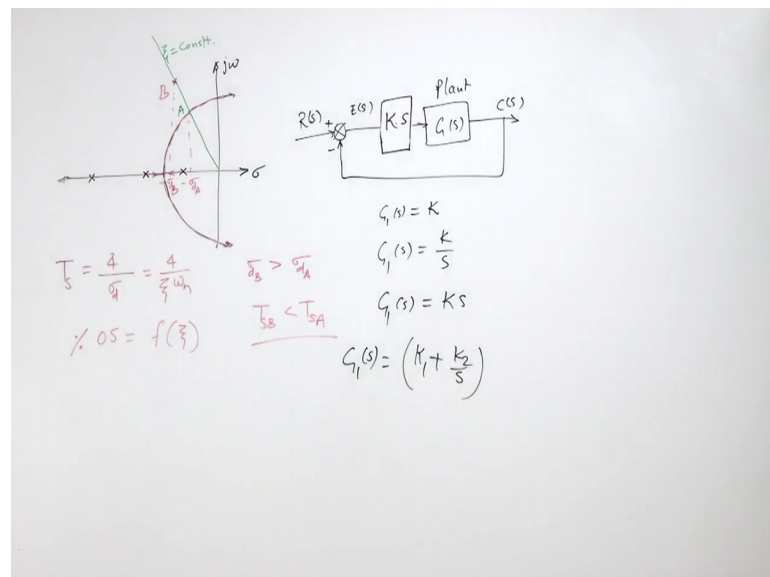 ξ = Constt.
jω
B
A
σ
-σB -σA
Plant
R(s) + E(s) K.S G(s) C(s)
-
G1(s) = K
G1(s) = K/S
G1(s) = KS
G1(s) = (K1 + K2/S)
Ts = 4/σd = 4/ξωn
σdB > σdA
TsB < TsA
% OS = f(ξ)